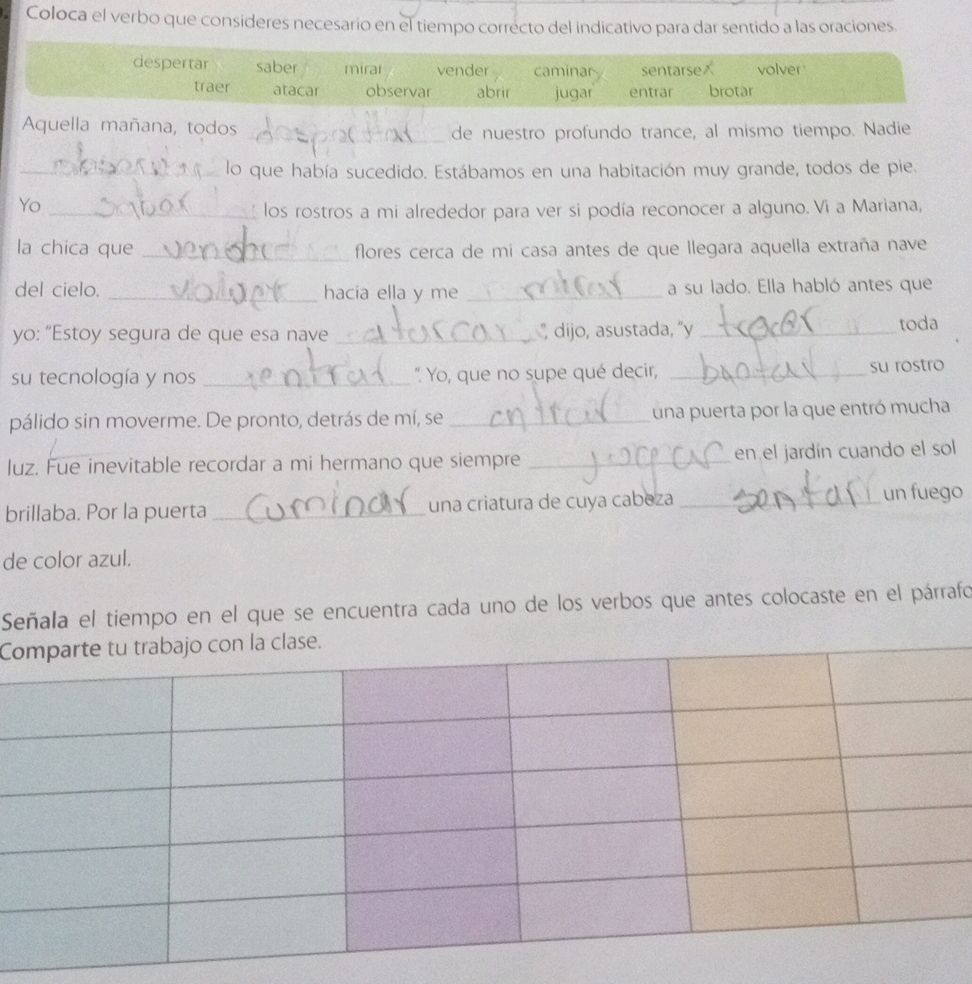 Coloca el verbo que consideres necesario en el tiempo correcto del indicativo para dar sentido a las oraciones.
despertar saber mirar vender caminar sentarse volver
traer atacar observar abrir jugar entrar brotar
Aquella mañana, todos despertar de nuestro profundo trance, al mismo tiempo. Nadie
lo que había sucedido. Estábamos en una habitación muy grande, todos de pie.
Yo sabar los rostros a mi alrededor para ver si podía reconocer a alguno. Vi a Mariana,
la chica que flores cerca de mi casa antes de que llegara aquella extraña nave
del cielo. hacia ella y me a su lado. Ella habló antes que
yo: "Estoy segura de que esa nave ", dijo, asustada, "y toda
su tecnología y nos entrar ". Yo, que no supe qué decir, su rostro
pálido sin moverme. De pronto, detrás de mí, se entrar una puerta por la que entró mucha
luz. Fue inevitable recordar a mi hermano que siempre en el jardín cuando el sol
brillaba. Por la puerta cuminar una criatura de cuya cabeza sentar un fuego
de color azul.
Señala el tiempo en el que se encuentra cada uno de los verbos que antes colocaste en el párrafo
Comparte tu trabajo con la clase.